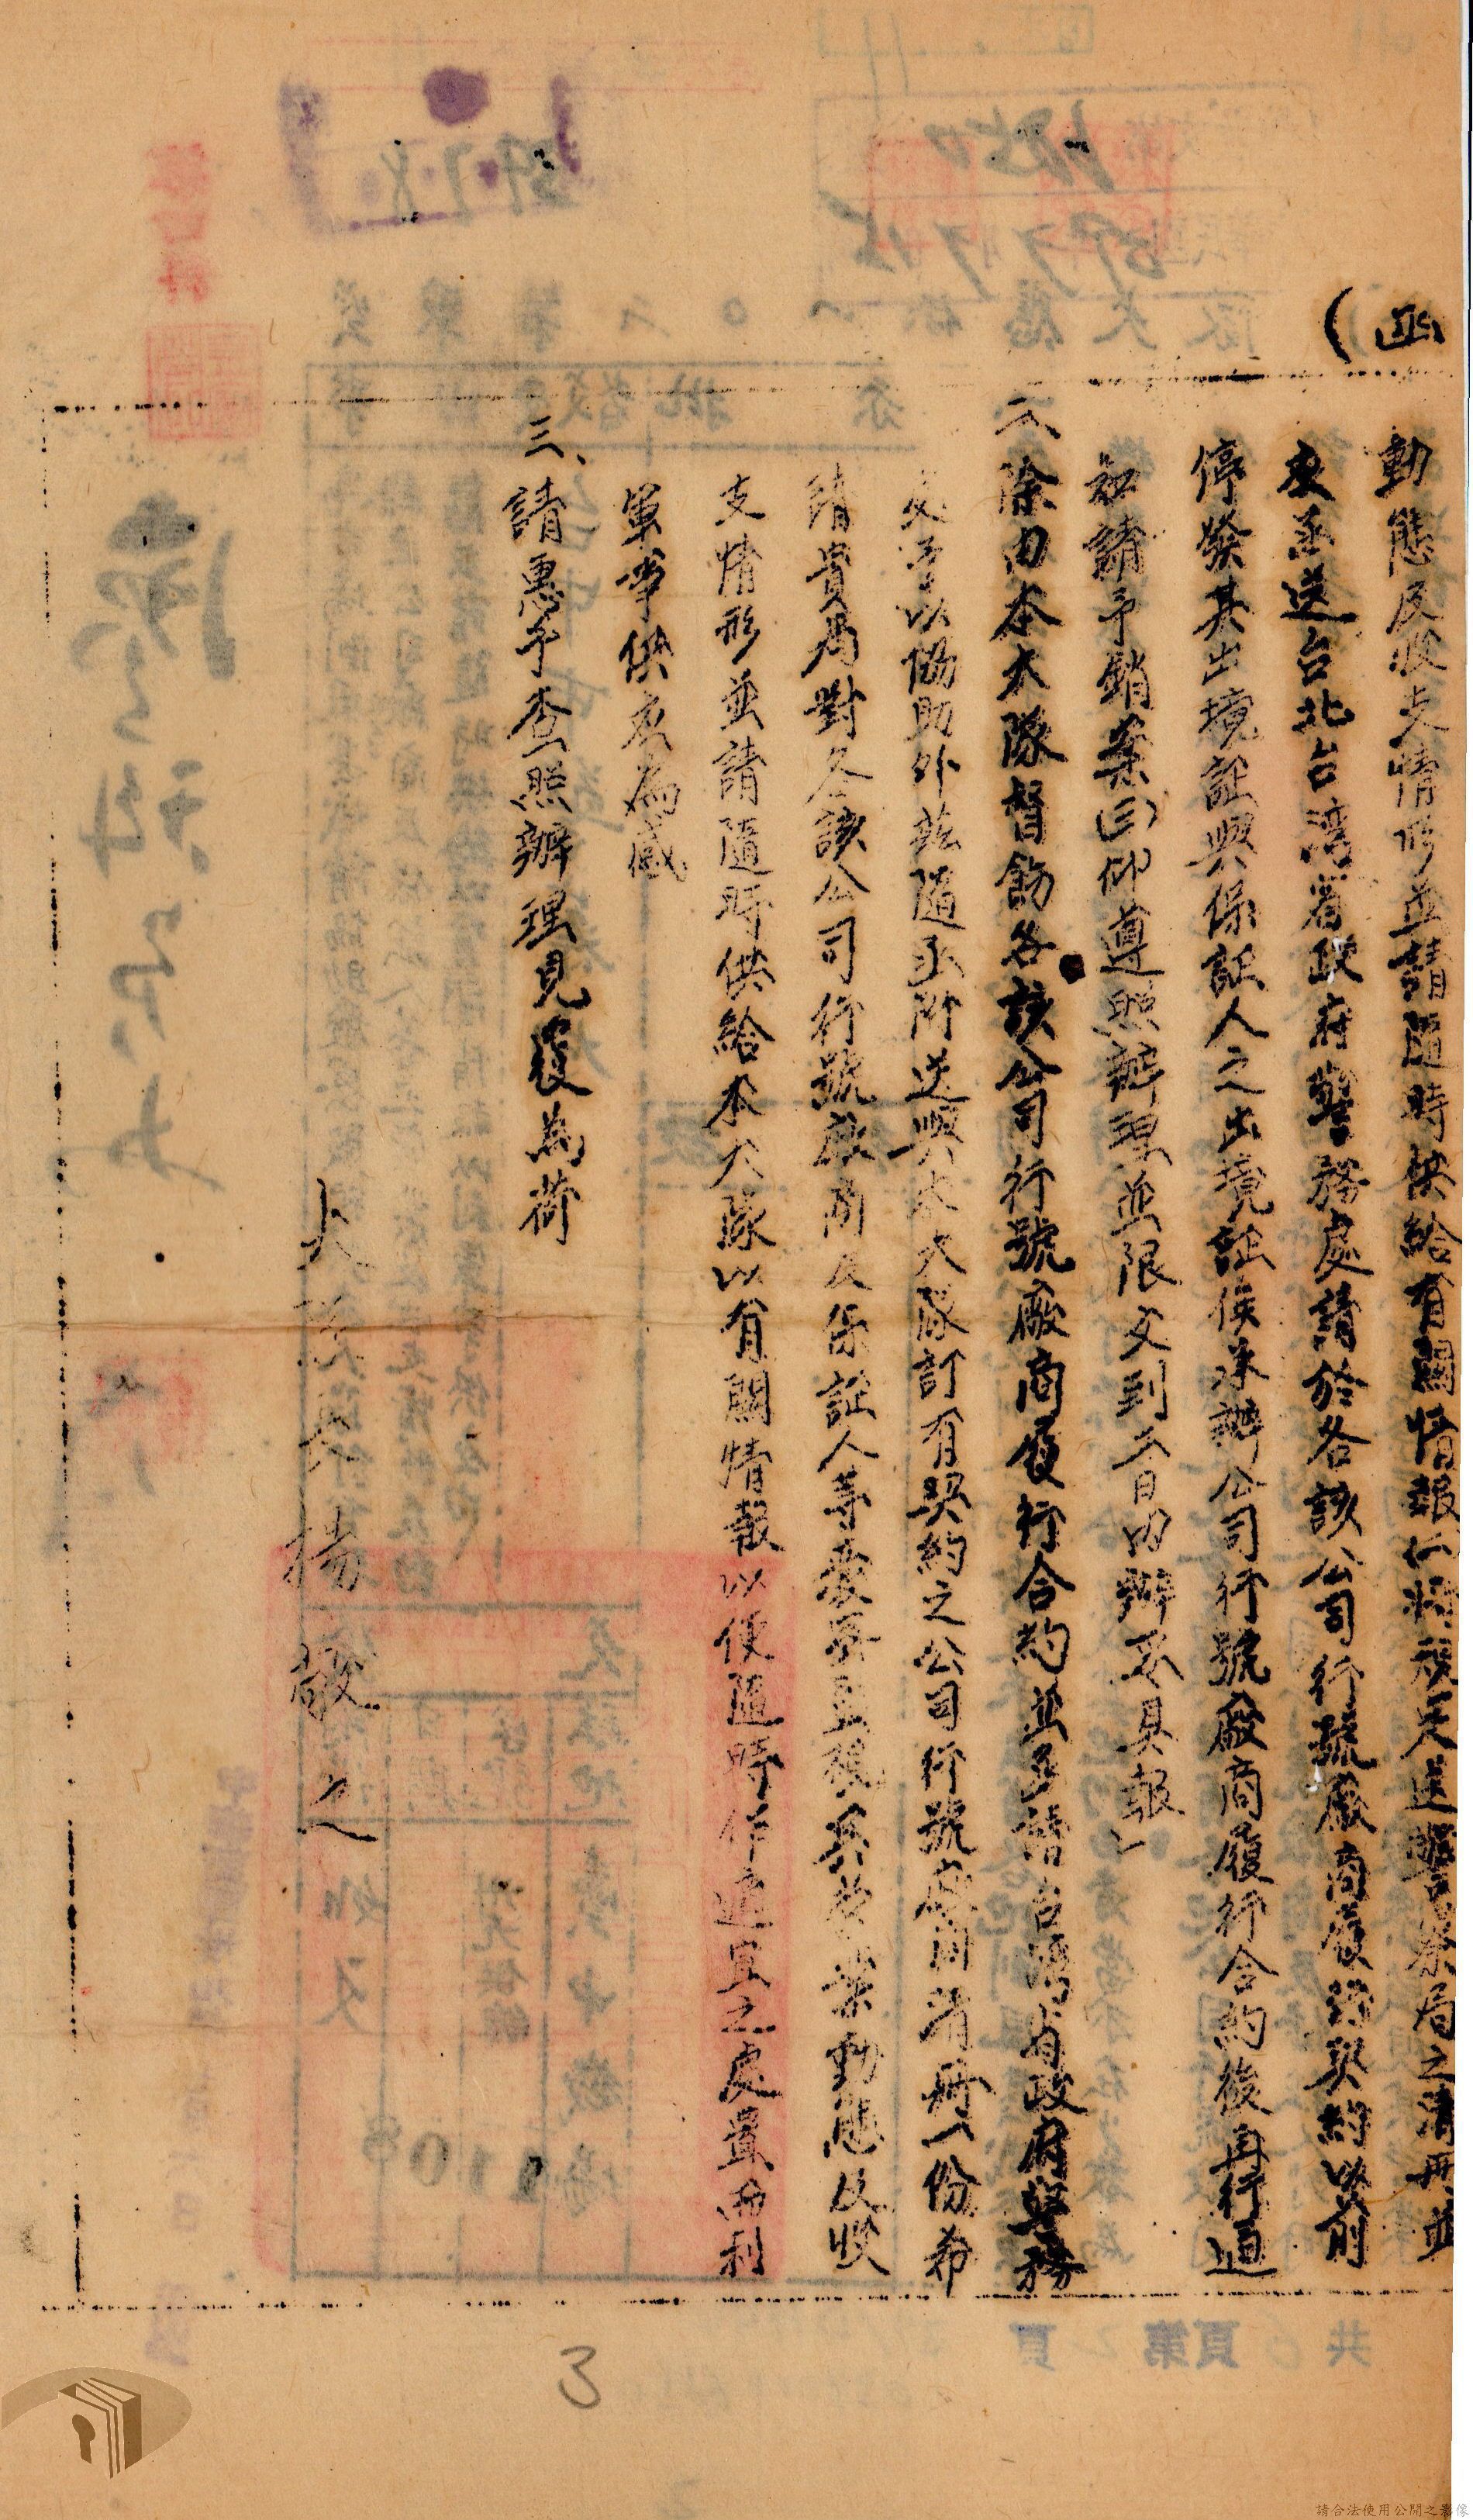 (函
動態及收支情形並請隨時供給有關情報仁將規定送警察局之清冊並
表函送台北台湾省政府警務處請於各該公司行號廠商履行契約以前
停發其出境証與保証人之出境証俟承辦公司行號廠商履行合約後再行通
知請予銷案(三)仰遵照辦理並限文到十日內辦妥具報」
二、除由本大隊督飭各該公司行號廠商履行合約並多請台湾省政府警務
處予以協助外茲隨函附送與本大隊訂有契約之公司行號廠商清冊一份希
請貴局對各該公司行號廠商及保証人等
其營業動態及收
支情形並請隨時供給本大隊以有關情報以便隨時作適宜之處置而利
軍事供應為感
三、請惠予查照辦理見復為荷
大隊長楊敬之
共 頁第 頁
3
請合法使用公開之影像